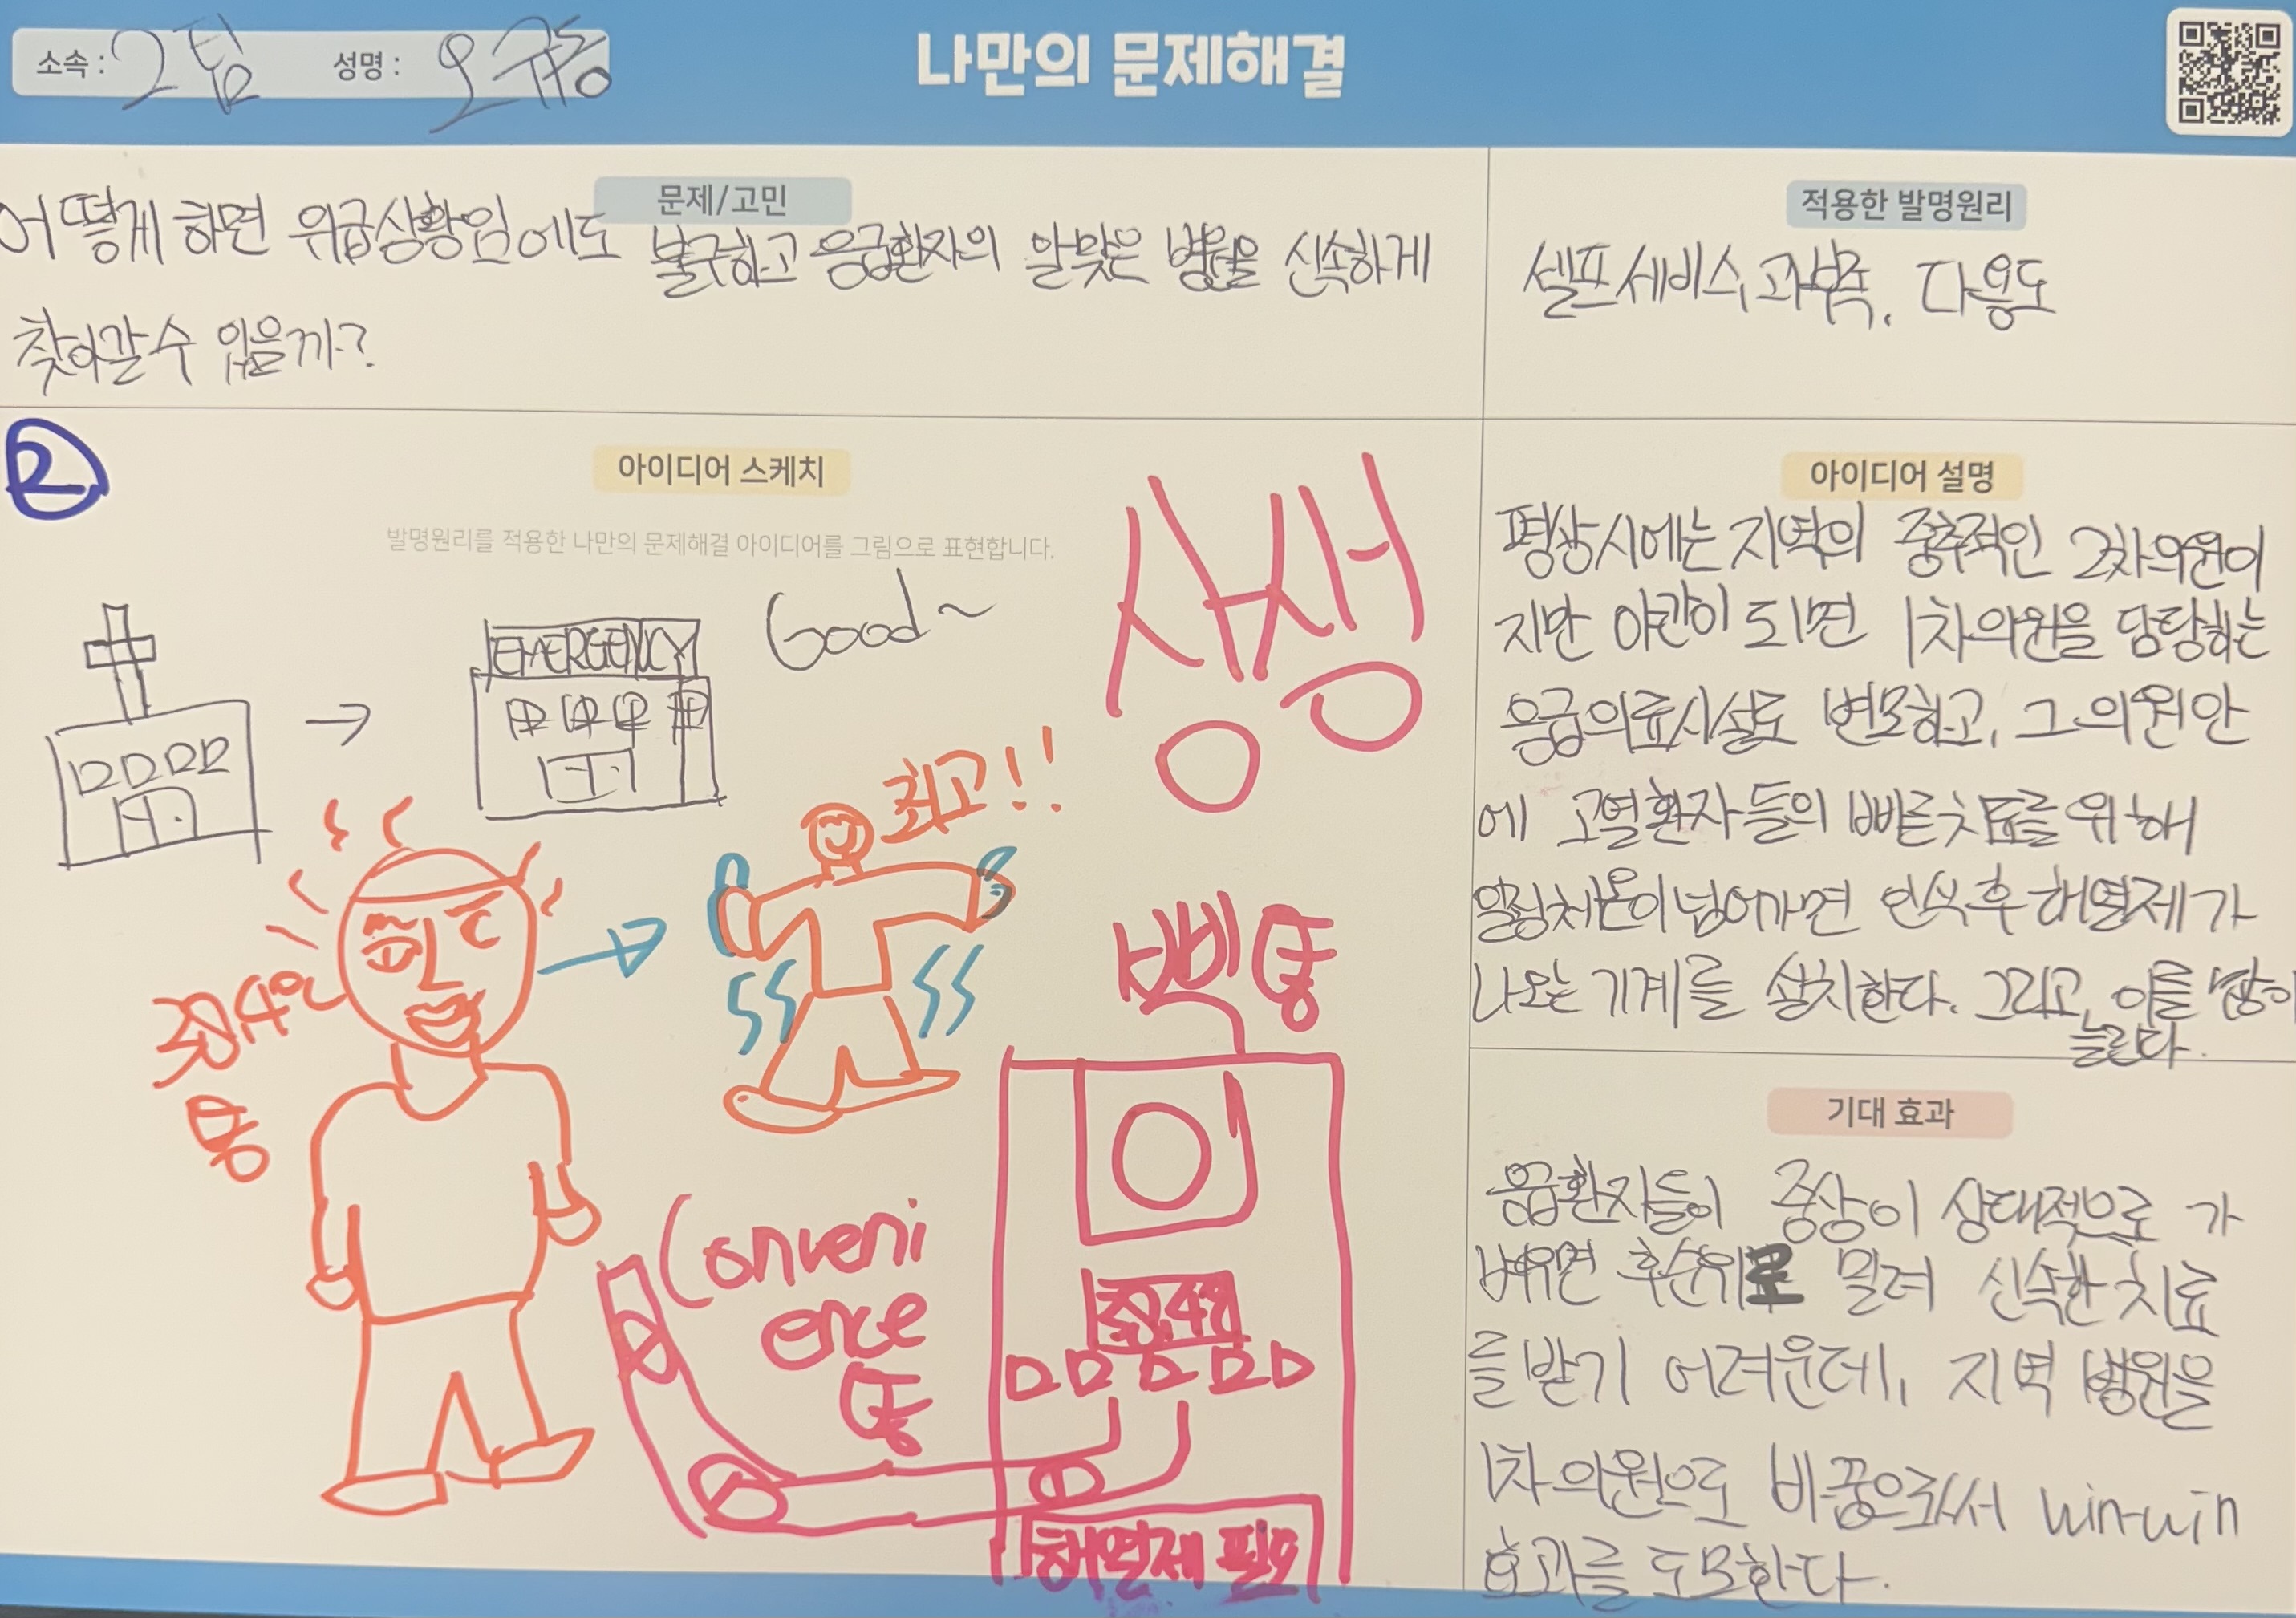 소속 : 2팀 성명 : 오규종
나만의 문제해결
문제/고민
어떻게 하면 위급상황임에도 불구하고 응급환자의 알맞은 병원을 신속하게
찾아갈 수 있을까?
적용한 발명원리
셀프서비스, 과부족, 다용도
2
아이디어 스케치
발명원리를 적용한 나만의 문제해결 아이디어를 그림으로 표현합니다.
EMERGENCY
Good~
상생
최고!!
38.4℃
Conveni
ence
38.4℃
해열제 필요
아이디어 설명
평상시에는 지역의 중추적인 2차의원이
지만 야간이 되면 1차의원을 담당하는
응급의료시설로 변모하고, 그 의원 안
에 고열환자들의 빠른 치료를 위해
일정체온이 넘어가면 인식 후 해열제가
나오는 기계를 설치한다. 그리고, 이를 많이
늘린다.
기대 효과
응급환자들이 증상이 상대적으로 가
벼우면 후순위로 밀려 신속한 치료
를 받기 어려운데, 지역 병원을
1차의원으로 바꿈으로서 win-win
효과를 도모한다.